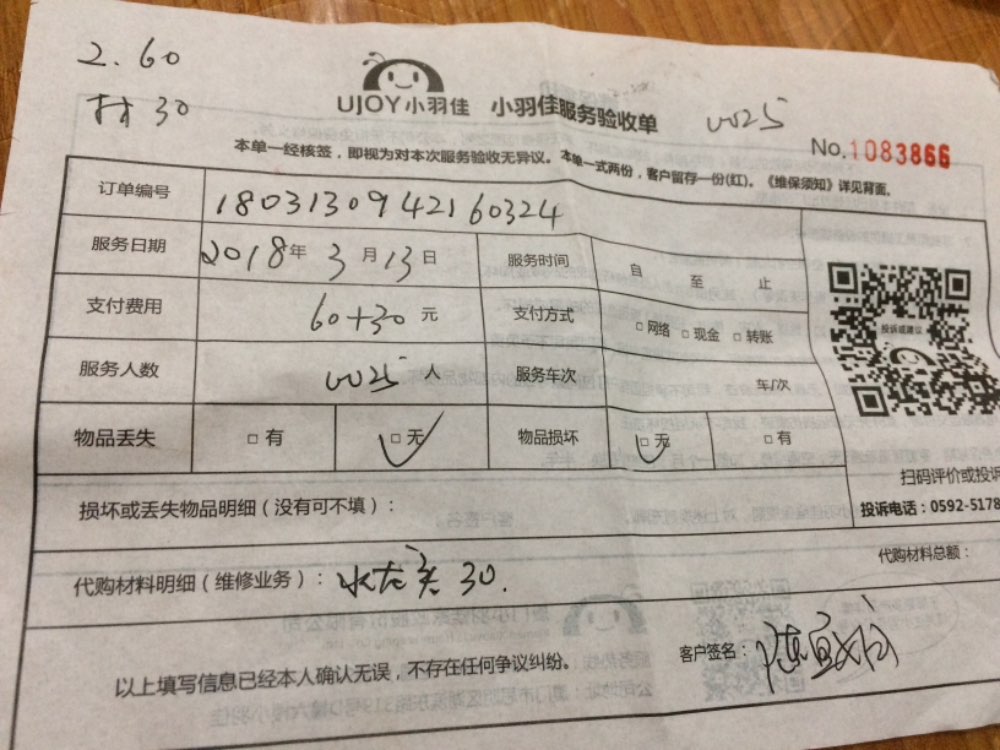 2.60
材30
UJOY小羽佳 小羽佳服务验收单
0025
No.1083866
本单一经核签，即视为对本次服务验收无异议。本单一式两份，客户留存一份(红)。《维保须知》详见背面。
订单编号 1803130942160324
服务日期 2018年3月13日 服务时间 自 至 止
支付费用 60+30元 支付方式 □网络 □现金 □转账
服务人数 0025人 服务车次 车/次
物品丢失 □有 □无 物品损坏 □无 □有
投诉或建议
扫码评价或投诉
投诉电话：0592-5178
损坏或丢失物品明细（没有可不填）：
代购材料明细（维修业务）：水龙头30.
代购材料总额：
以上填写信息已经本人确认无误，不存在任何争议纠纷。
客户签名：